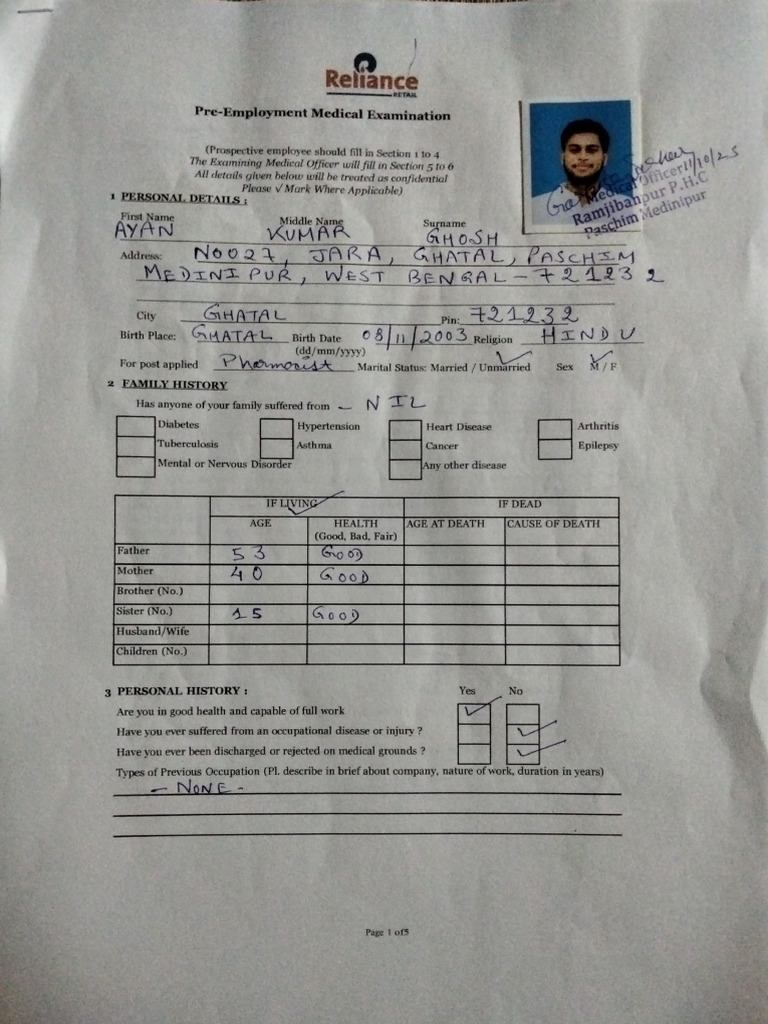 Reliance
RETAIL
Pre-Employment Medical Examination
(Prospective employee should fill in Section 1 to 4
The Examining Medical Officer will fill in Section 5 to 6
All details given below will be treated as confidential
Please √ Mark Where Applicable)
11/10/25
Medical Officer
Ramjibanpur P.H.C
Paschim Medinipur
1 PERSONAL DETAILS :
First Name Middle Name Surname
AYAN KUMAR GHOSH
Address: NOO27, JARA, GHATAL, PASCHIM
MEDINIPUR, WEST BENGAL - 721232
City GHATAL Pin: 721232
Birth Place: GHATAL Birth Date 08/11/2003 Religion HINDU
(dd/mm/yyyy)
For post applied Pharmacist Marital Status: Married / Unmarried Sex M / F
2 FAMILY HISTORY
Has anyone of your family suffered from - NIL
Diabetes Hypertension Heart Disease Arthritis
Tuberculosis Asthma Cancer Epilepsy
Mental or Nervous Disorder Any other disease
IF LIVING IF DEAD
AGE HEALTH AGE AT DEATH CAUSE OF DEATH
(Good, Bad, Fair)
Father 53 GOOD
Mother 40 GOOD
Brother (No.)
Sister (No.) 15 GOOD
Husband/Wife
Children (No.)
3 PERSONAL HISTORY : Yes No
Are you in good health and capable of full work ✓
Have you ever suffered from an occupational disease or injury ? ✓
Have you ever been discharged or rejected on medical grounds ? ✓
Types of Previous Occupation (Pl. describe in brief about company, nature of work, duration in years)
- NONE -
Page 1 of5